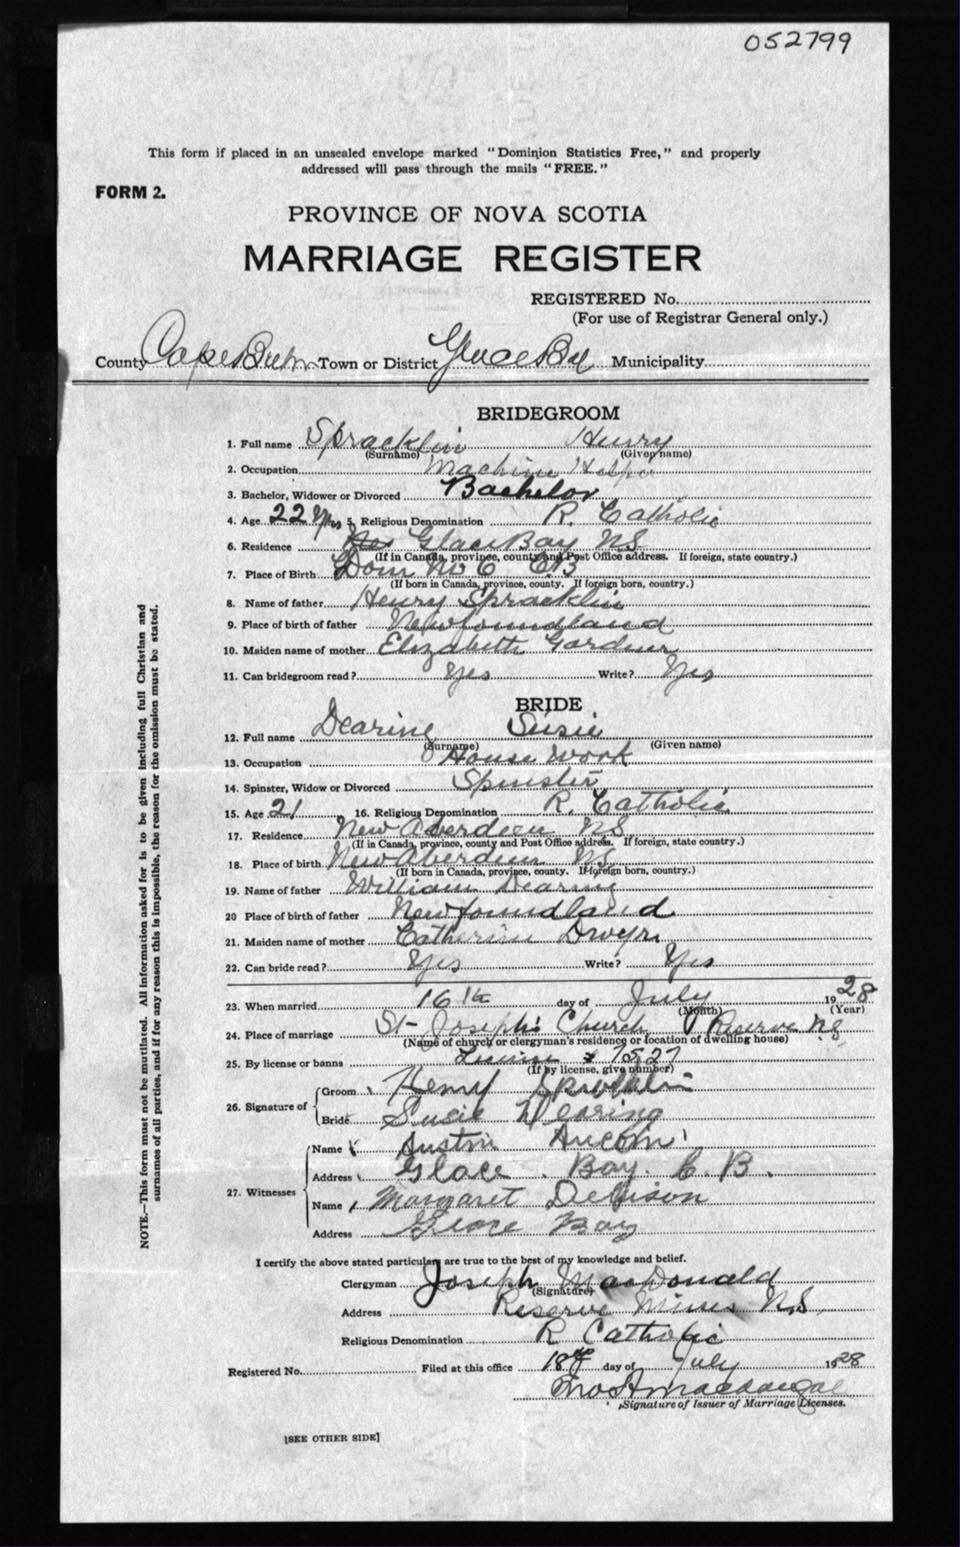 052799
This form if placed in an unsealed envelope marked "Dominion Statistics Free," and properly
addressed will pass through the mails "FREE."
FORM 2.
PROVINCE OF NOVA SCOTIA
MARRIAGE REGISTER
REGISTERED No.
(For use of Registrar General only.)
County Cape Breton Town or District Glace Bay Municipality
BRIDEGROOM
1. Full name Spracklin Henry
(Surname) (Given name)
2. Occupation Machine Helper
3. Bachelor, Widower or Divorced Bachelor
4. Age 22 yrs 5. Religious Denomination R. Catholic
6. Residence Glace Bay NS
(If in Canada, province, county and Post Office address. If foreign, state country.)
7. Place of Birth Dom No 6 CB
(If born in Canada, province, county. If foreign born, country.)
8. Name of father Henry Spracklin
9. Place of birth of father Newfoundland
10. Maiden name of mother Elizabeth Gardner
11. Can bridegroom read? Yes Write? Yes
BRIDE
12. Full name Dearing Susie
(Surname) (Given name)
13. Occupation House Work
14. Spinster, Widow or Divorced Spinster
15. Age 21 16. Religious Denomination R. Catholic
17. Residence New Aberdeen NS
(If in Canada, province, county and Post Office address. If foreign, state country.)
18. Place of birth New Aberdeen NS
(If born in Canada, province, county. If foreign born, country.)
19. Name of father William Dearing
20 Place of birth of father Newfoundland
21. Maiden name of mother Catherine Dwyer
22. Can bride read? Yes Write? Yes
23. When married 16th day of July 1928
(Month) (Year)
24. Place of marriage St Joseph's Church, Reserve N.S.
(Name of church or clergyman's residence or location of dwelling house)
25. By license or banns License
(If by license, give number)
26. Signature of
Groom Henry Spracklin
Bride Susie Dearing
27. Witnesses
Name Austin
Address Glace Bay. C. B.
Name Margaret
Address Glace Bay
I certify the above stated particulars are true to the best of my knowledge and belief.
Clergyman Joseph MacDonald
(Signature)
Address Reserve Mines N.S.
Religious Denomination R Catholic
Registered No. Filed at this office 18th day of July 1928
Signature of Issuer of Marriage Licenses.
[SEE OTHER SIDE]
NOTE.—This form must not be mutilated. All information asked for is to be given including full Christian and
surnames of all parties, and if for any reason this is impossible, the reason for the omission must be stated.